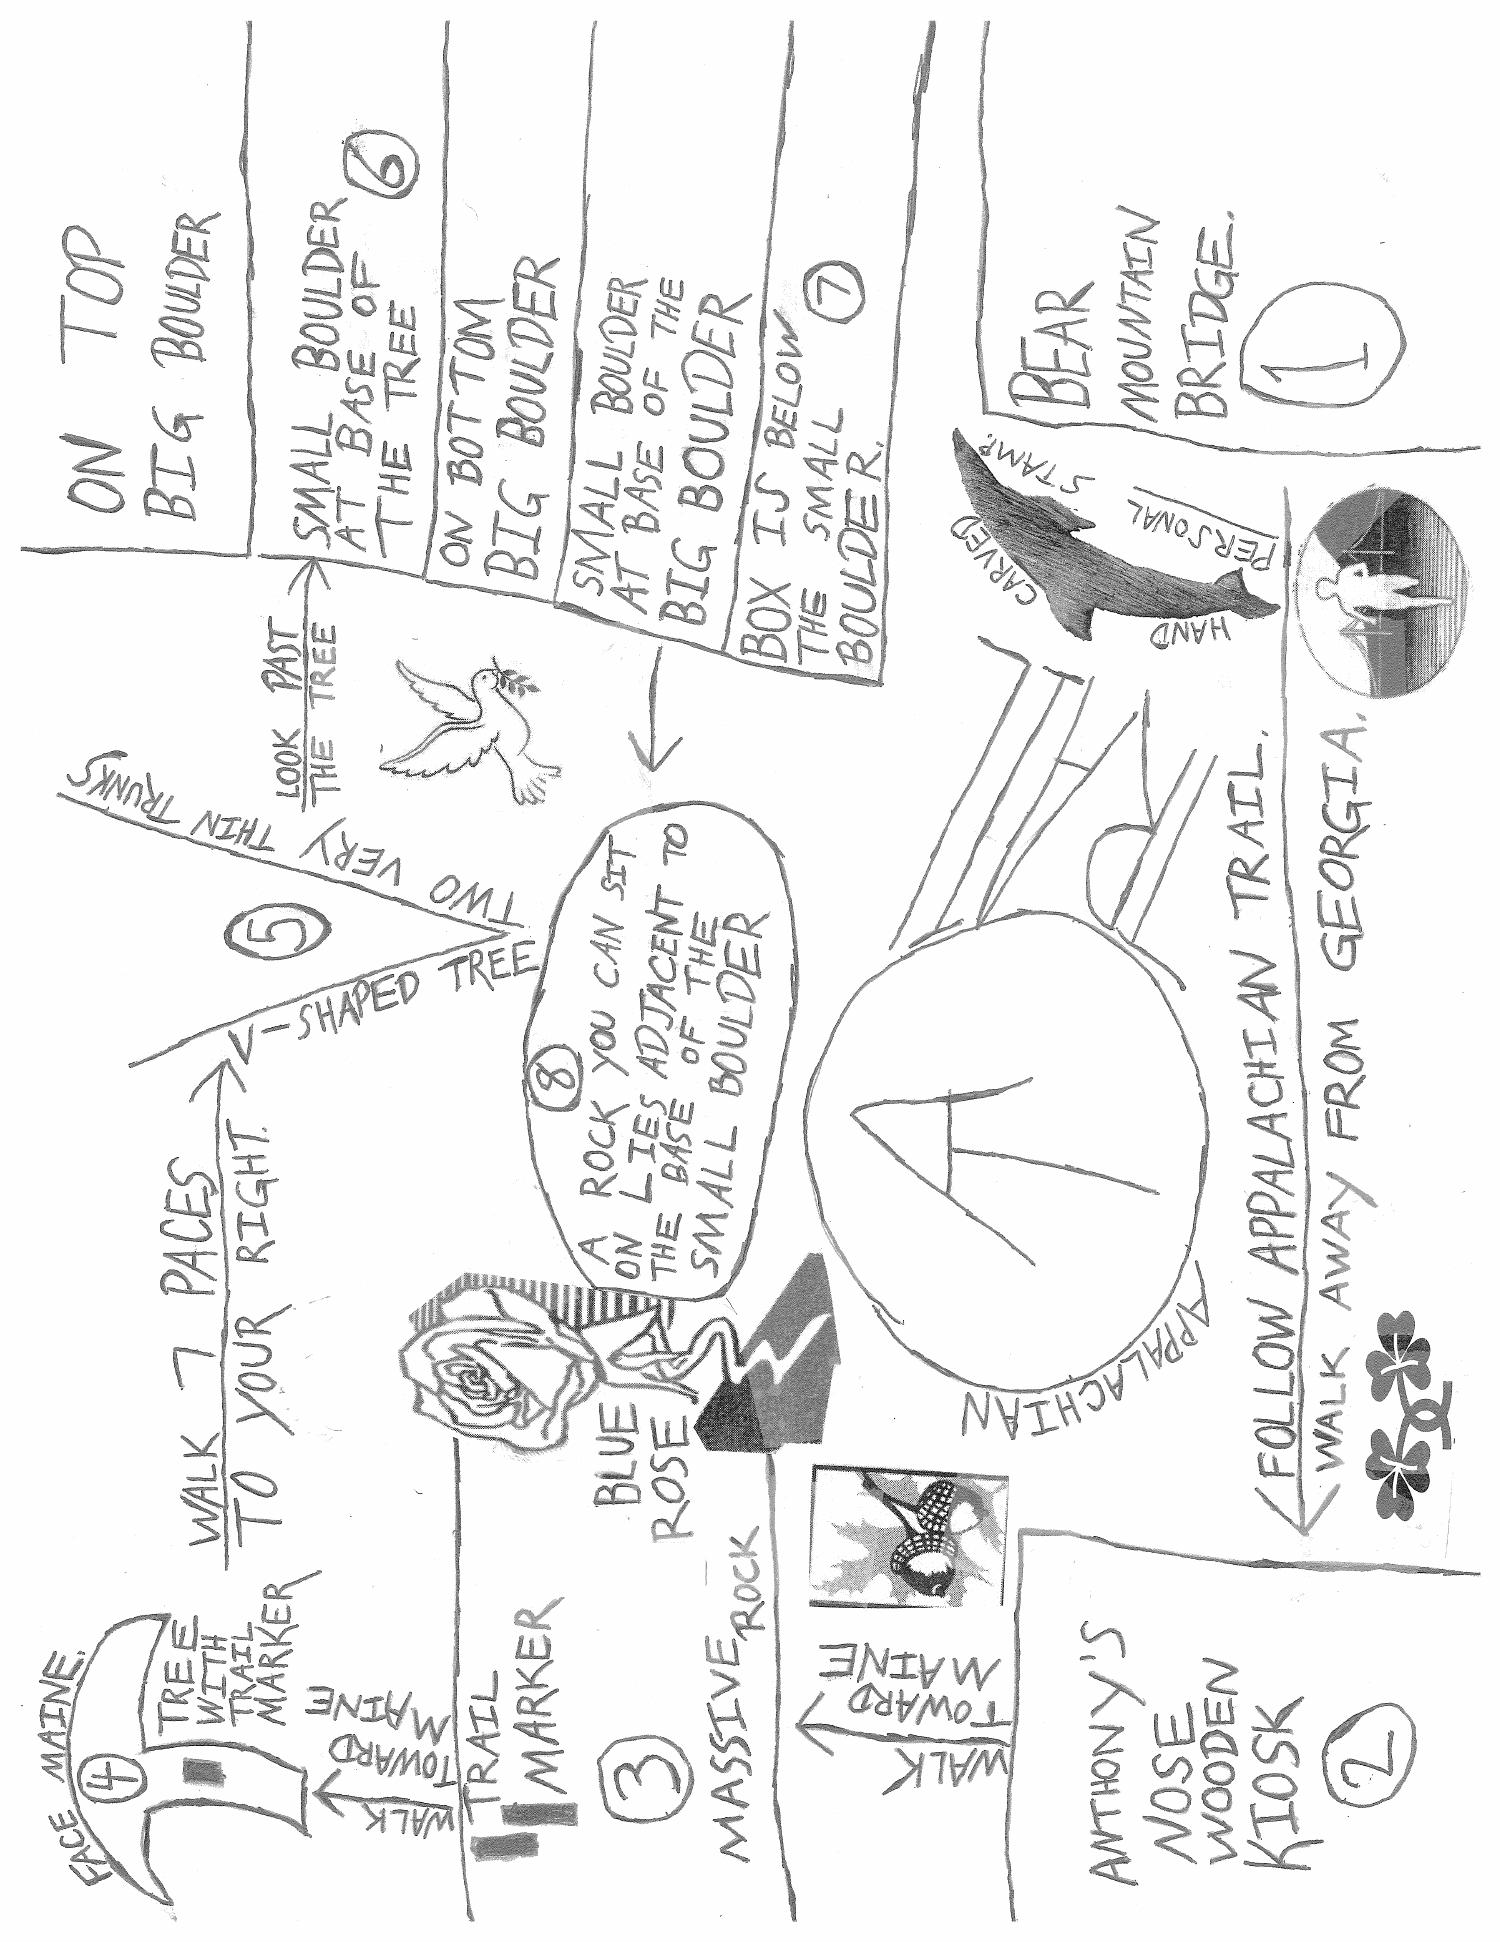 BEAR
MOUNTAIN
BRIDGE.
1
HAND
CARVED
PERSONAL
STAMP.
FOLLOW APPALACHIAN TRAIL.
WALK AWAY FROM GEORGIA.
APPALACHIAN
TRAIL
ANTHONY'S
NOSE
WOODEN
KIOSK
2
WALK
TOWARD
MAINE
MASSIVE
ROCK
3
TRAIL
MARKER
BLUE
ROSE
WALK
TOWARD
MAINE
FACE MAINE.
4
TREE
WITH
TRAIL
MARKER
WALK 7 PACES
TO YOUR RIGHT.
5
-SHAPED TREE
TWO VERY THIN TRUNKS
LOOK PAST
THE TREE
ON TOP
BIG BOULDER
SMALL BOULDER
AT BASE OF
THE TREE
6
ON BOTTOM
BIG BOULDER
SMALL BOULDER
AT BASE OF THE
BIG BOULDER
BOX IS BELOW
THE SMALL
BOULDER.
7
8
A ROCK YOU CAN SIT
ON LIES ADJACENT TO
THE BASE OF THE
SMALL BOULDER